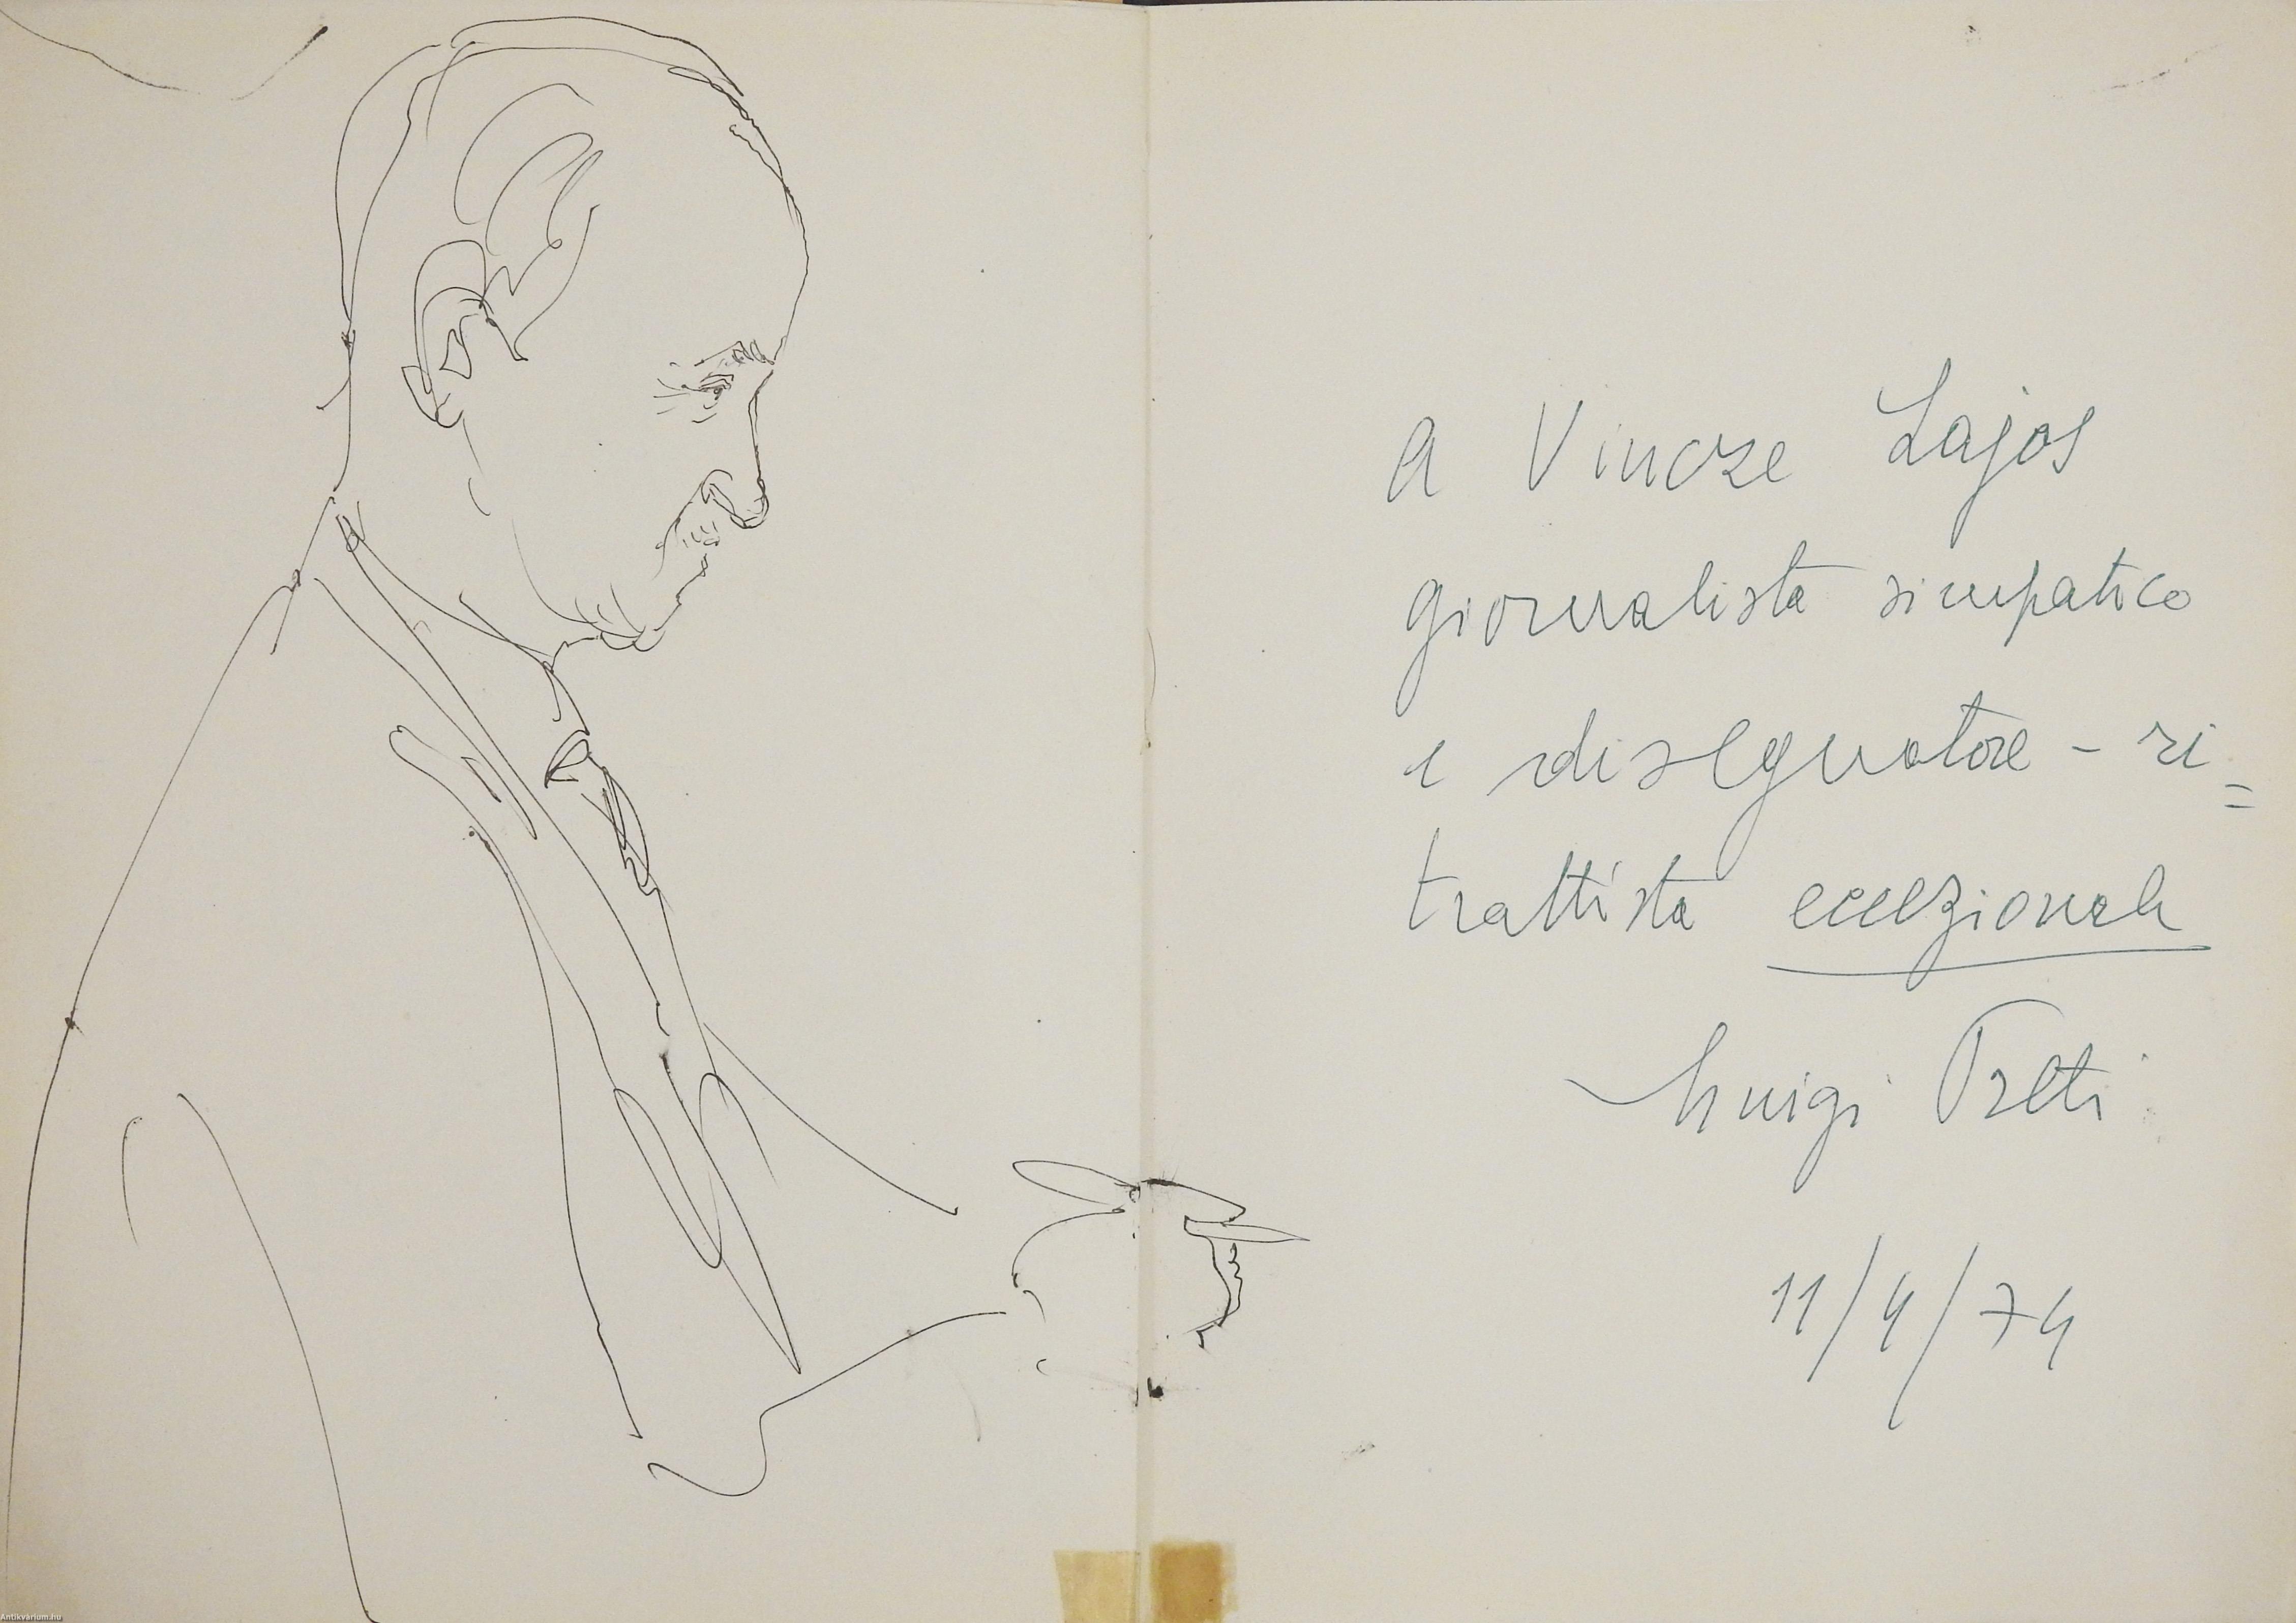 a Vincze Lajos
giornalista simpatico
e disegnatore - ri=
trattista eccezionale
Luigi Preti
11/4/74
Antikvárium.hu